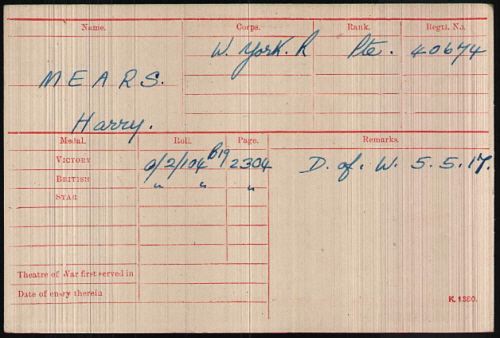 Name. Corps. Rank. Regtl. No.
W. York. R Pte. 40674
MEARS.
Harry.
Medal. Roll. Page. Remarks.
VICTORY O/2/104 B19 2304 D. of. W. 5.5.17.
BRITISH " " "
STAR
Theatre of War first served in
Date of entry therein
K. 1380.